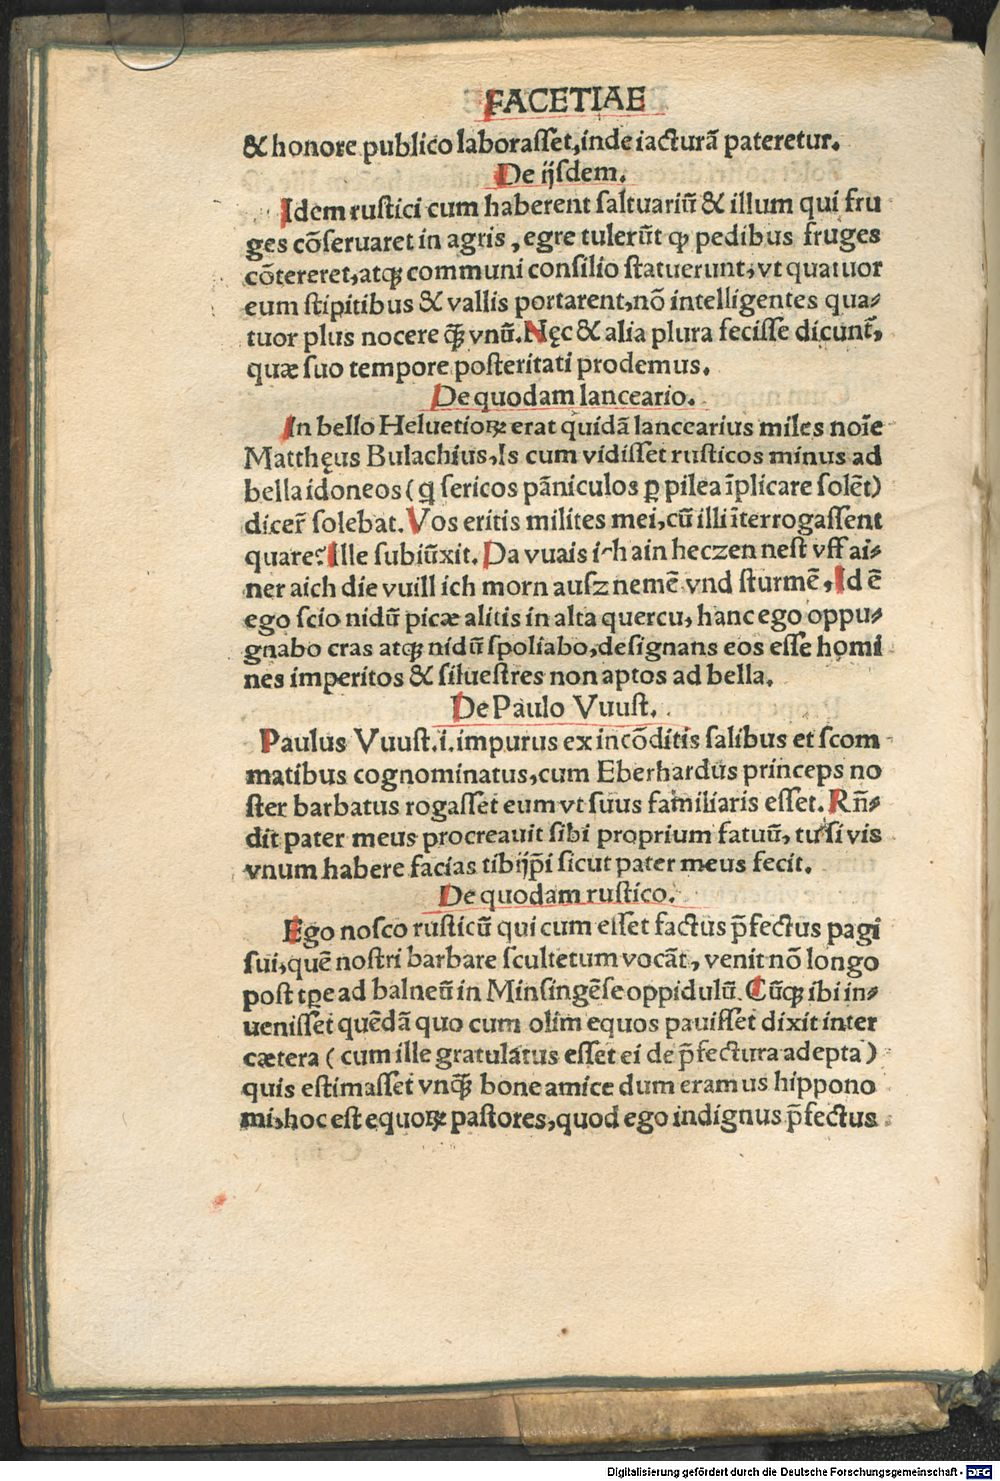 FACETIAE
& honore publico laborasset, inde iacturã pateretur.
De ijsdem.
Idem rustici cum haberent saltuariũ & illum qui fru
ges cõseruaret in agris, egre tulerũt ꝙ pedibus fruges
cõtereret, atqꝫ communi consilio statuerunt, vt quatuor
eum stipitibus & vallis portarent, nõ intelligentes qua⸗
tuor plus nocere q̃ꝫ vnũ. Nęc & alia plura fecisse dicunt̃,
quæ suo tempore posteritati prodemus.
De quodam lanceario.
In bello Heluetioꝝ erat quidã lancearius miles noĩe
Matthęus Bulachius, Is cum vidisset rusticos minus ad
bella idoneos (q sericos pãniculos ꝑ pilea ĩplicare solẽt)
dicer̃ solebat. Vos eritis milites mei, cũ illi ĩterrogassent
quare? Ille subiũxit. Da vuais ich ain heczen nest vff ai⸗
ner aich die vuill ich morn ausz nemẽ vnd sturmẽ, Id ẽ
ego scio nidũ picæ alitis in alta quercu, hanc ego oppu⸗
gnabo cras atqꝫ nidũ spoliabo, designans eos esse homi
nes imperitos & siluestres non aptos ad bella.
De Paulo Vuust.
Paulus Vuust .i. impurus ex incõditis salibus et scom
matibus cognominatus, cum Eberhardus princeps no
ster barbatus rogasset eum vt suus familiaris esset. Rñ⸗
dit pater meus procreauit sibi proprium fatuũ, tu si vis
vnum habere facias tibijp̃i sicut pater meus fecit.
De quodam rustico.
Ego nosco rusticũ qui cum esset factus p̃fectus pagi
sui, quẽ nostri barbare scultetum vocãt, venit nõ longo
post tꝑe ad balneũ in Minsingẽse oppidulũ. Cũqꝫ ibi in⸗
uenisset quẽdã quo cum olim equos pauisset dixit inter
cætera (cum ille gratulatus esset ei de p̃fectura adepta)
quis estimasset vnq̃ꝫ bone amice dum eramus hippono
mi, hoc est equoꝝ pastores, quod ego indignus p̃fectus
Digitalisierung gefördert durch die Deutsche Forschungsgemeinschaft - DFG